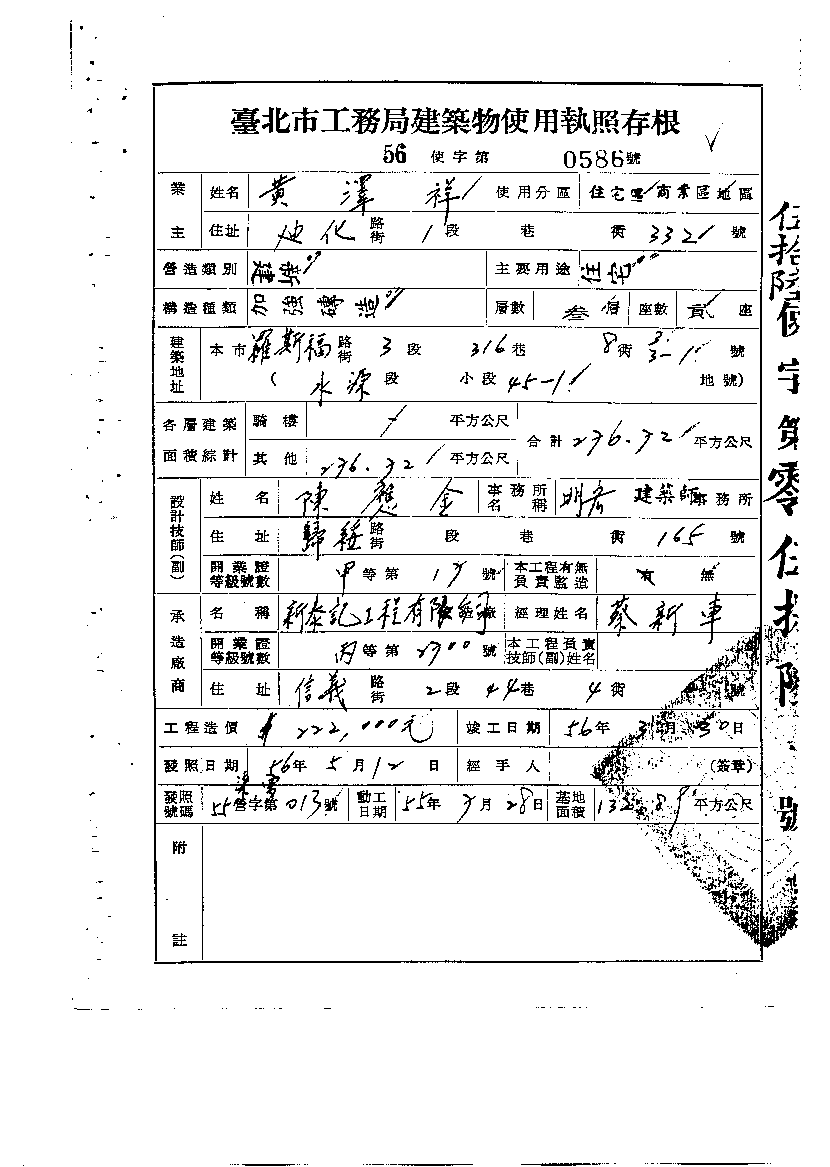 臺北市工務局建築物使用執照存根
56 使字第 0586號
業主 姓名 黃澤祥 使用分區 住宅區 商業區 地區
住址 迪化 路街 1段 巷 街 332 號
營造類別 新建 主要用途 住宅
構造種類 加強磚造 層數 叁層 座數 貳座
建築地址 本市 羅斯福 路街 3段 316巷 8街 號
( 水源 段 小段 45-1 地號)
各層建築面積綜計 騎樓 平方公尺 合計 236.32 平方公尺
其他 236.32 平方公尺
設計技師(副) 姓名 陳應金 事務所名稱 建築師事務所
住址 歸綏 路街 段 巷 街 165 號
開業證等級號數 甲等第 號 本工程有無負責監造 有 無
承造廠商 名稱 新泰記工程有限 經理姓名 蔡新車
開業證等級號數 丙等第 2300 號 本工程負責技師(副)姓名
住址 信義 路街 2段 44巷 4街 號
工程造價 $222,000元 竣工日期 56年 月 30日
發照日期 56年5月12日 經手人 (簽章)
發照號碼 55 營字第 013號 動工日期 55年 月28日 基地面積 132.89 平方公尺
附註
伍拾陸使字第零伍捌陸號